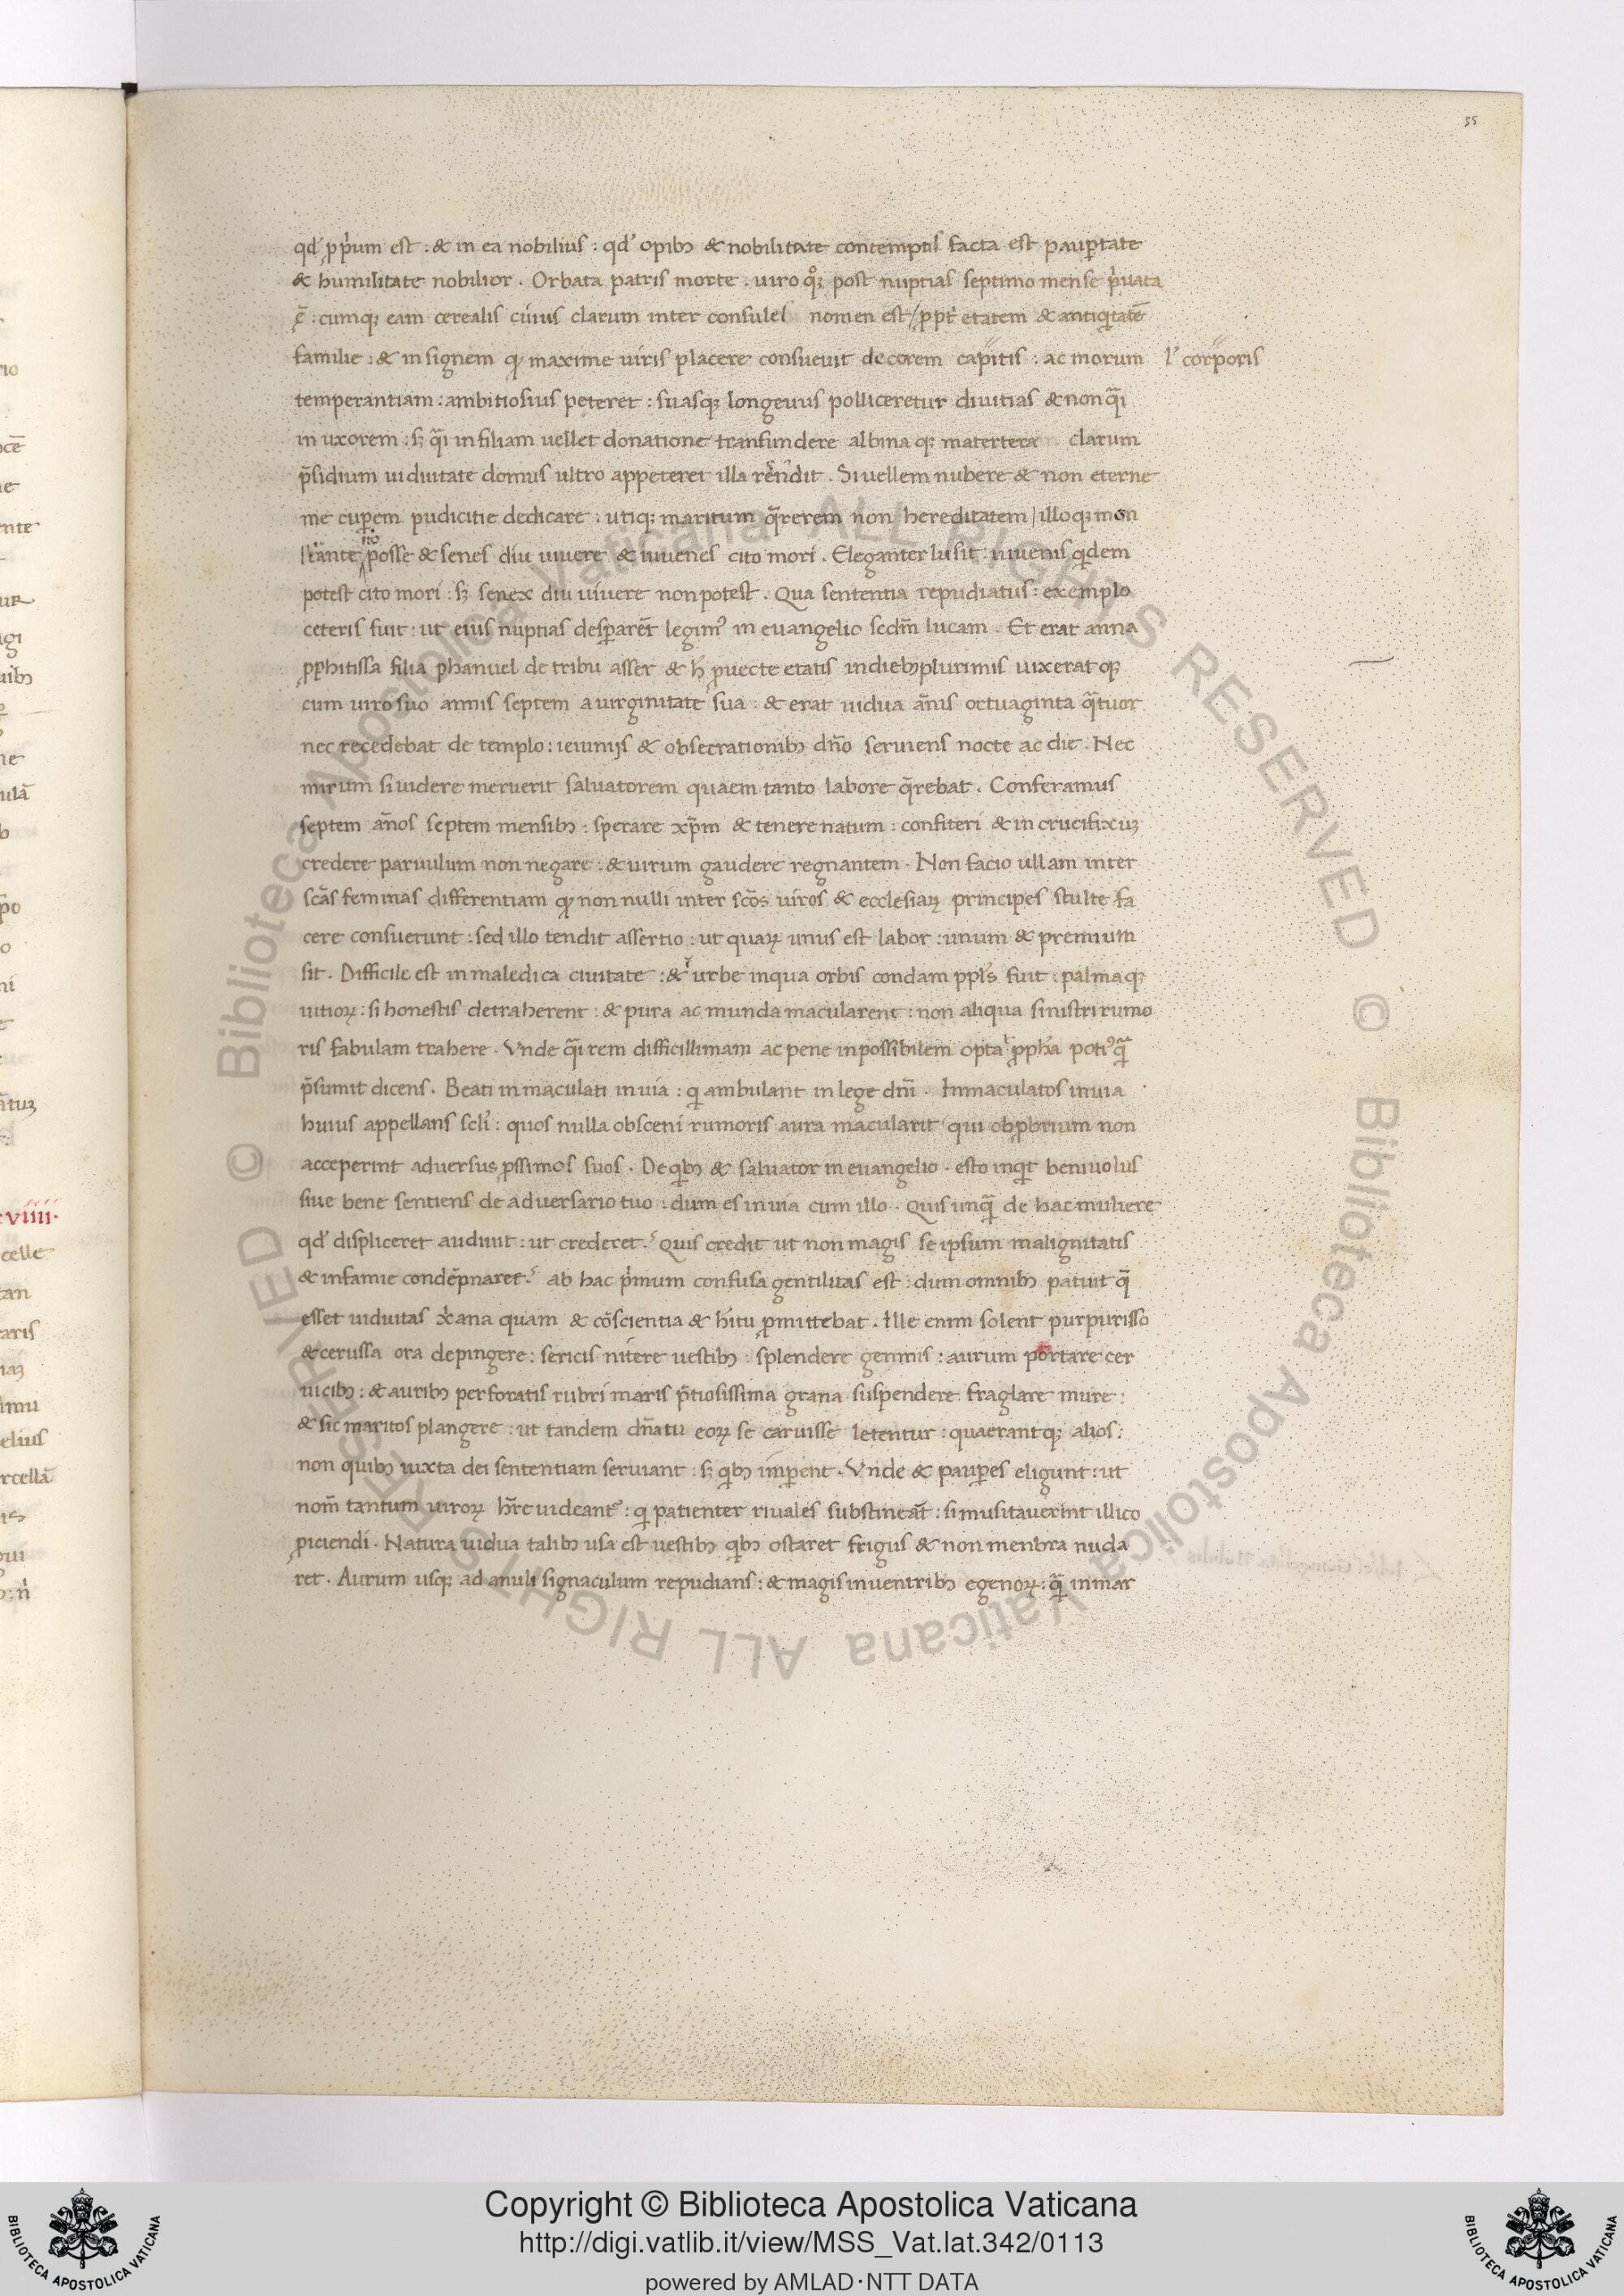 55
qd' pp'ium est : & in ea nobilius : qd' opib; & nobilitate contemptis facta est paup̱tate
& humilitate nobilior . Orbata patris morte . uiro q°q; post nuptias septimo mense p'uata
ē : cumq; eam cerealis cuius clarum inter consules nomen est / ppt' etatem & antiq'tatē
familie : & insignem q̃ maxime uiris placere consueuit decorem capitis : ac morum l' corporis
temperantiam : ambitiosius peteret : suasq; longeuus polliceretur diuitias & non q̃i
in uxorem : s; q̃i in filiam uellet donatione transfundere albina q; matertera clarum
p̃sidium uiduitate domus ultro appeteret illa rēndit . Si uellem nubere & non eterne
me cup̱em pudicitie dedicare : utiq; maritum q̃rerem non hereditatem / illoq; mon
st'ante nō posse & senes diu uiuere & iuuenes cito mori . Eleganter lusit : iuuenis q'dem
potest cito mori : s; senex diu uiuere non potest . Qua sententia repudiatus : exemplo
ceteris fuit : ut eius nuptias desp̱arēt legim' in euangelio scdm̄ lucam . Et erat anna
p̱phitissa filia phanuel de tribu asser & h' p̱uecte etatis in dieb; plurimis uixerat q;
cum uiro suo annis septem a uirginitate sua : & erat uidua ān̄is octuaginta q̃tuor
nec recedebat de templo : ieiunijs & obsecrationib; dn̄o seruiens nocte ac die . Nec
mirum si uidere meruerit saluatorem quaem tanto labore q̃rebat . Conferamus
septem an̄os septem mensib; : sperare xp̄m & tenere natum : confiteri & in crucifixu;
credere paruulum non negare : & uirum gaudere regnantem . Non facio ullam inter
scās feminas differentiam q̃ non nulli inter scōs uiros & ecclesiaꝝ principes stulte fa
cere consuerunt : sed illo tendit assertio : ut quaꝝ unus est labor : unum & premium
sit . Difficile est in maledica ciuitate : & ī urbe inqua orbis condam ppl's fuit : palmaq;
uitioꝝ : si honestis detraherent : & pura ac munda macularent : non aliqua sinistri rumo
ris fabulam trahere . Vnde q̃i rem difficillimam ac pene inpossibilem opta' p̱ph'a poti' q̃
p̃sumit dicens . Beati inmaculati in uia : q' ambulant in lege dn̄i . Inmaculatos in uia
huius appellans scl'i : quos nulla obsceni rumoris aura macularit / qui obp̱brium non
acceperint aduersus p̱ssimos suos . De q'b; & saluator in euangelio . esto inq't beniuolus
siue bene sentiens de aduersario tuo : dum es in uia cum illo . Quis unq̃ de hac muliere
qd' displiceret audiuit : ut crederet ? Quis credit ut non magis se ipsum malignitatis
& infamie condēpnaret ? ab hac p'mum confusa gentilitas est : dum omnib; patuit q̃
esset uiduitas x'ana quam & cōscientia & h'itu p̱mittebat . Ille enim solent purpurisso
& cerussa ora depingere : sericis nitere uestib; : splendere gemmis : aurum portare cer
uicib; : & aurib; perforatis rubri maris p̃tiosissima grana suspendere fraglare mure :
& sic maritos plangere : ut tandem dn̄atu eoꝝ se caruisse letentur : quaerantq; alios :
non quib; iuxta dei sententiam seruiant : s; q'b; imp̱ent . Vnde & paup̱es eligunt : ut
nom̄ tantum uiroꝝ h̄re uideant' : q' patienter riuales substineāt : si musitauerint illico
p̱iciendi . Natura uidua talib; usa est uestib; q'b; ostaret frigus & non menbra nuda
ret . Aurum usq; ad anuli signaculum repudians : & magis in uentrib; egenoꝝ : q̃ in mar
Copyright © Biblioteca Apostolica Vaticana
http://digi.vatlib.it/view/MSS_Vat.lat.342/0113
powered by AMLAD·NTT DATA